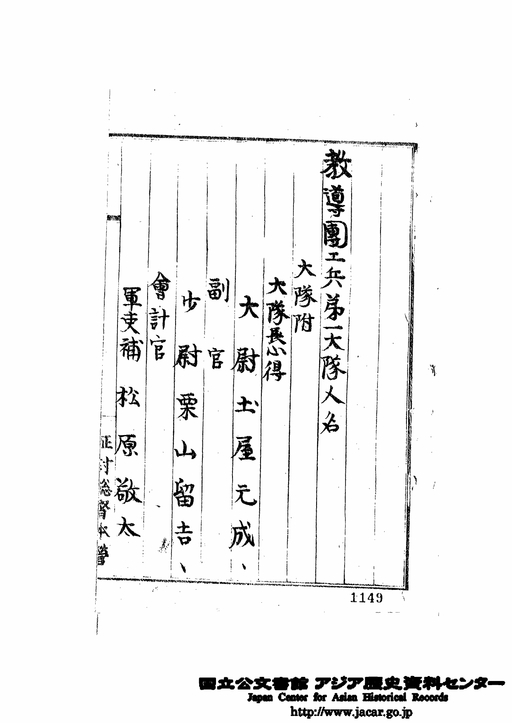 教導團工兵第一大隊人名
大隊附
大隊長心得
大尉土屋元成、
副官
少尉栗山留吉、
會計官
軍吏補松原敬太
征討総督本營
1149
国立公文書館 アジア歴史資料センター
Japan Center for Asian Historical Records
http://www.jacar.go.jp